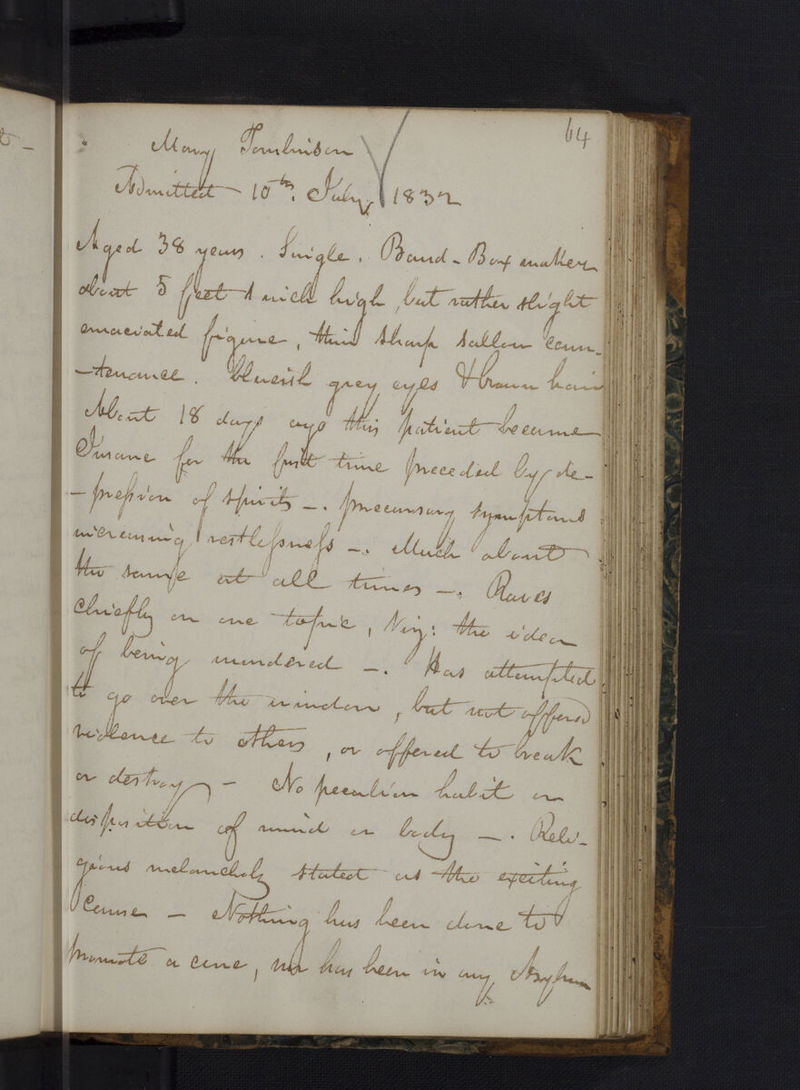 64
Mary Tomlinson
Admitted 10th. July 1832
Aged 38 years. Single. Band-Box maker
about 5 feet 1 inch high, but rather slight
emaciated figure, thin sharp sallow coun-
-tenance. blueish grey eyes & brown hair
About 18 days ago this patient became
Insane for the first time preceded by de-
-pression of spirits -. precursary symptoms
increasing restlessness -. Much about
the same at all times -. Raves
chiefly on one topic, Viz: the idea
of being murdered -. Has attempted
to go over the window, but not offered
violence to others, or offered to break
or destroy - No peculiar habit or
disposition of mind or body -. Reli-
gious melancholy stated as the exciting
Cause - Nothing has been done to
promote a cure, nor has been in any Asylum